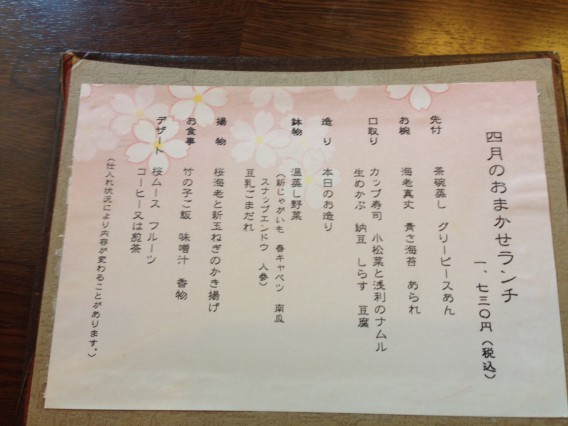 四月のおまかせランチ
一、七三〇円（税込）
先付　茶碗蒸し　グリーピースあん
お椀　海老真丈　青さ海苔　あられ
口取り　カップ寿司　小松菜と浅利のナムル
生めかぶ　納豆　しらす　豆腐
造り　本日のお造り
鉢物　温蒸し野菜
（新じゃがいも　春キャベツ　南瓜
スナップエンドウ　人参）
豆乳ごまだれ
揚物　桜海老と新玉ねぎのかき揚げ
お食事　竹の子ご飯　味噌汁　香物
デザート　桜ムース　フルーツ
コーヒー又は煎茶
（仕入れ状況により内容が変わることがあります。）